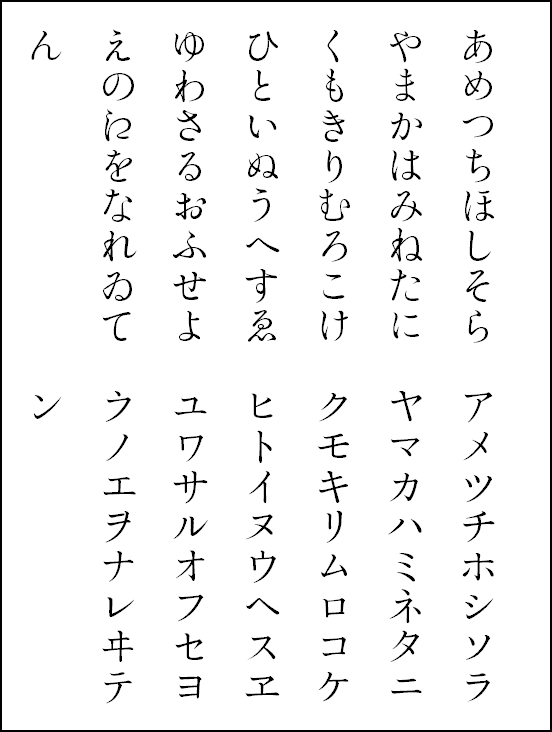 あめつちほしそら
やまかはみねたに
くもきりむろこけ
ひといぬうへすゑ
ゆわさるおふせよ
えの𛀁をなれゐて
ん
アメツチホシソラ
ヤマカハミネタニ
クモキリムロコケ
ヒトイヌウヘスヱ
ユワサルオフセヨ
ウノエヲナレヰテ
ン